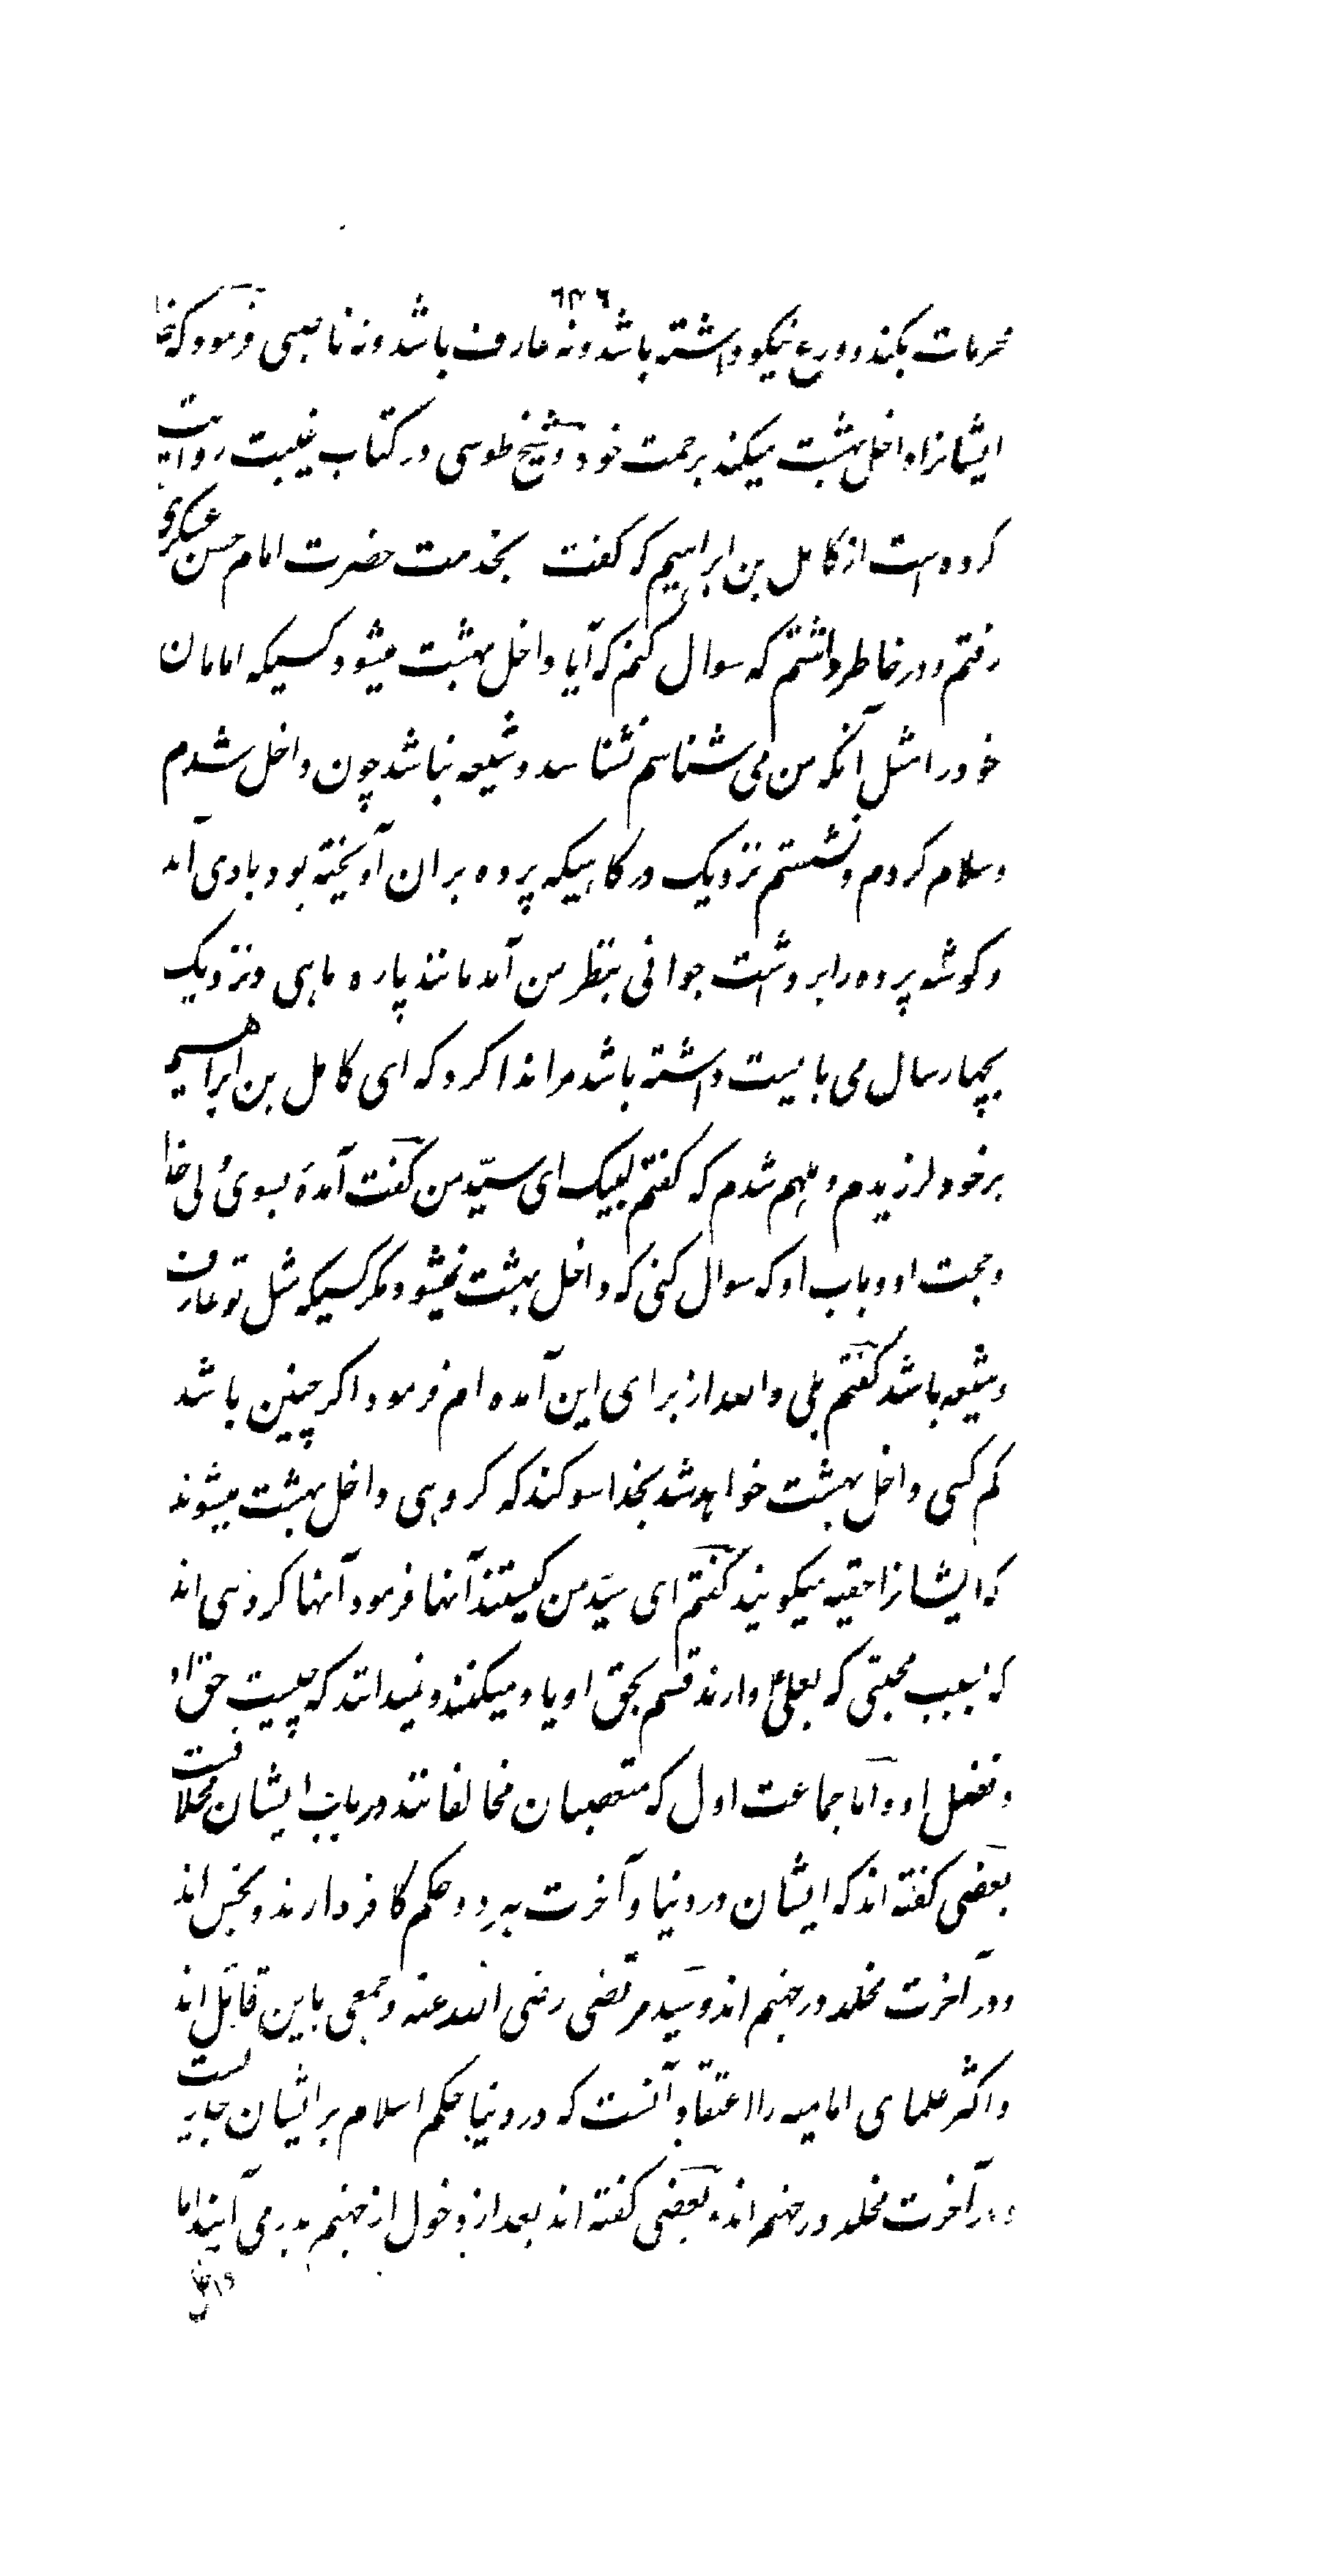 ۶۳۶
محرمات بکند و ورع نیکو داشته باشد و نه عارف باشد و نه ناصبی فرمود که خدا
ایشانرا داخل بهشت میکند برحمت خود و شیخ طوسی در کتاب غیبت روایت
کرده است از کامل بن ابراهیم که گفت بخدمت حضرت امام حسن عسکری
رفتم و در خاطر داشتم که سوال کنم که آیا داخل بهشت میشود کسیکه امامان
خود را مثل آنکه من می شناسم نشناسد و شیعه نباشد چون داخل شدم
و سلام کردم و نشستم نزدیک درگاهیکه پرده بران آویخته بود بادی آمد
و گوشه پرده را برداشت جوانی بنظر من آمد مانند پاره ماهی و نزدیک
بچهار سال می بایست داشته باشد مرا ندا کرد که ای کامل بن ابراهیم
بر خود لرزیدم و ملهم شدم که گفتم لبیک ای سیّد من گفت آمدهٔ بسوی ولی خدا
و حجت او و باب او که سوال کنی که داخل بهشت نمیشود مگر کسیکه مثل تو عارف
و شیعه باشد گفتم بلی والله از برای این آمده ام فرمود اگر چنین باشد
کم کسی داخل بهشت خواهد شد بخدا سوگند که گروهی داخل بهشت میشوند
که ایشانرا حقیه میگویند گفتم ای سیّد من کیستند آنها فرمود آنها گروهی اند
که بسبب محبتی که بعلی دارند قسم بحق او یاد میکنند و نمیدانند که چیست حق او
و فضل او و اما جماعت اول که متعصبان مخالفانند در باب ایشان خلافست
بعضی گفته اند که ایشان در دنیا و آخرت هر دو حکم کافر دارند و نجس اند
و در آخرت مخلد در جهنم اند و سید مرتضی رضی الله عنه و جمعی باین قائل اند
و اکثر علمای امامیه را اعتقاد آنست که در دنیا حکم اسلام بر ایشان جاریست
و در آخرت مخلد در جهنم اند و بعضی گفته اند بعد از دخول از جهنم بدر می آیند اما